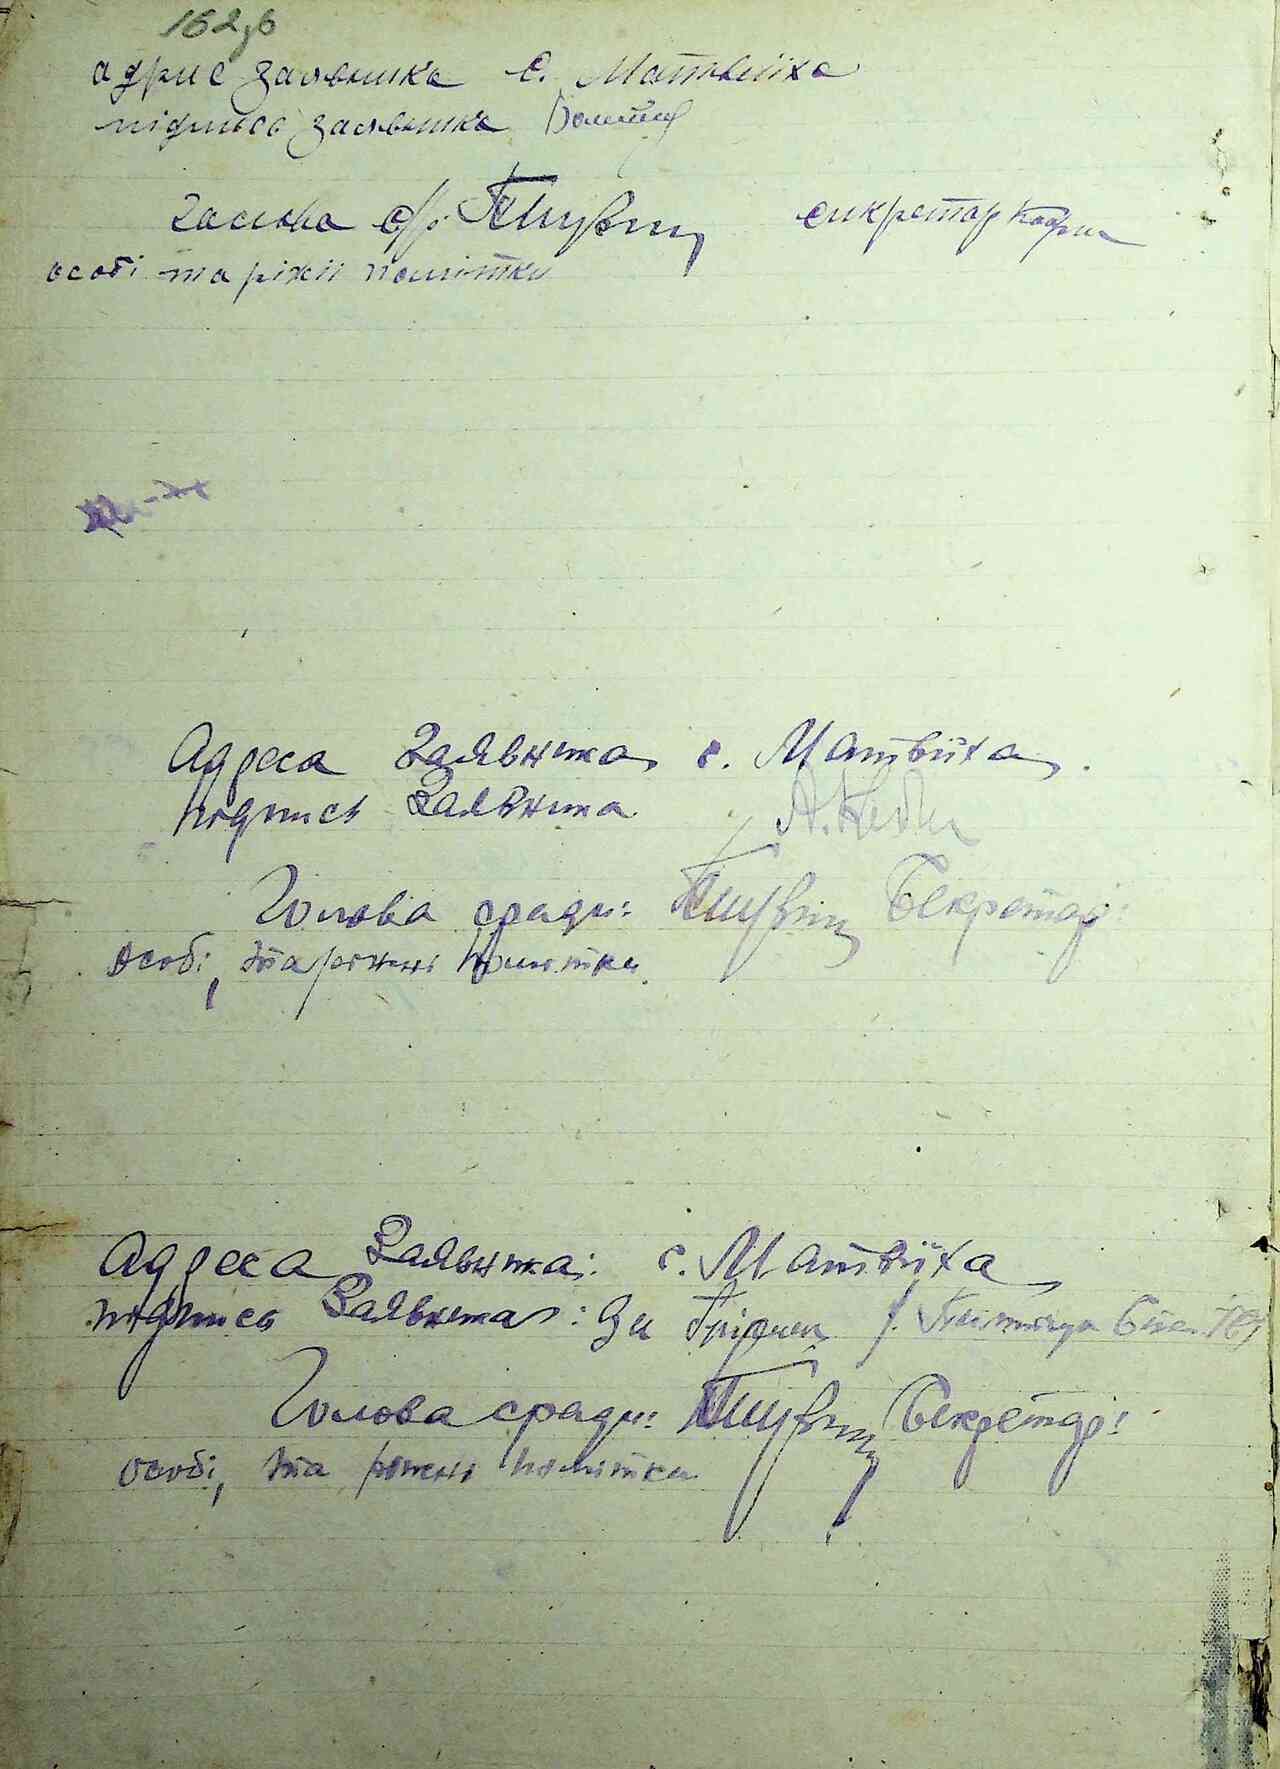 162зв
адрис заявника с. Матвіїха
підпись заявника
галова с/р. секретар
особі та ріжні помітки
Адреса Заявника с. Матвіїха.
подпись Заявника А. Неб
Голова сради: Секретар:
Особі, та ріжні помітки.
Адреса Заявника: с. Матвіїха
подпись Заявника: За
Голова сради: Секретар:
особі, та ріжні помітки